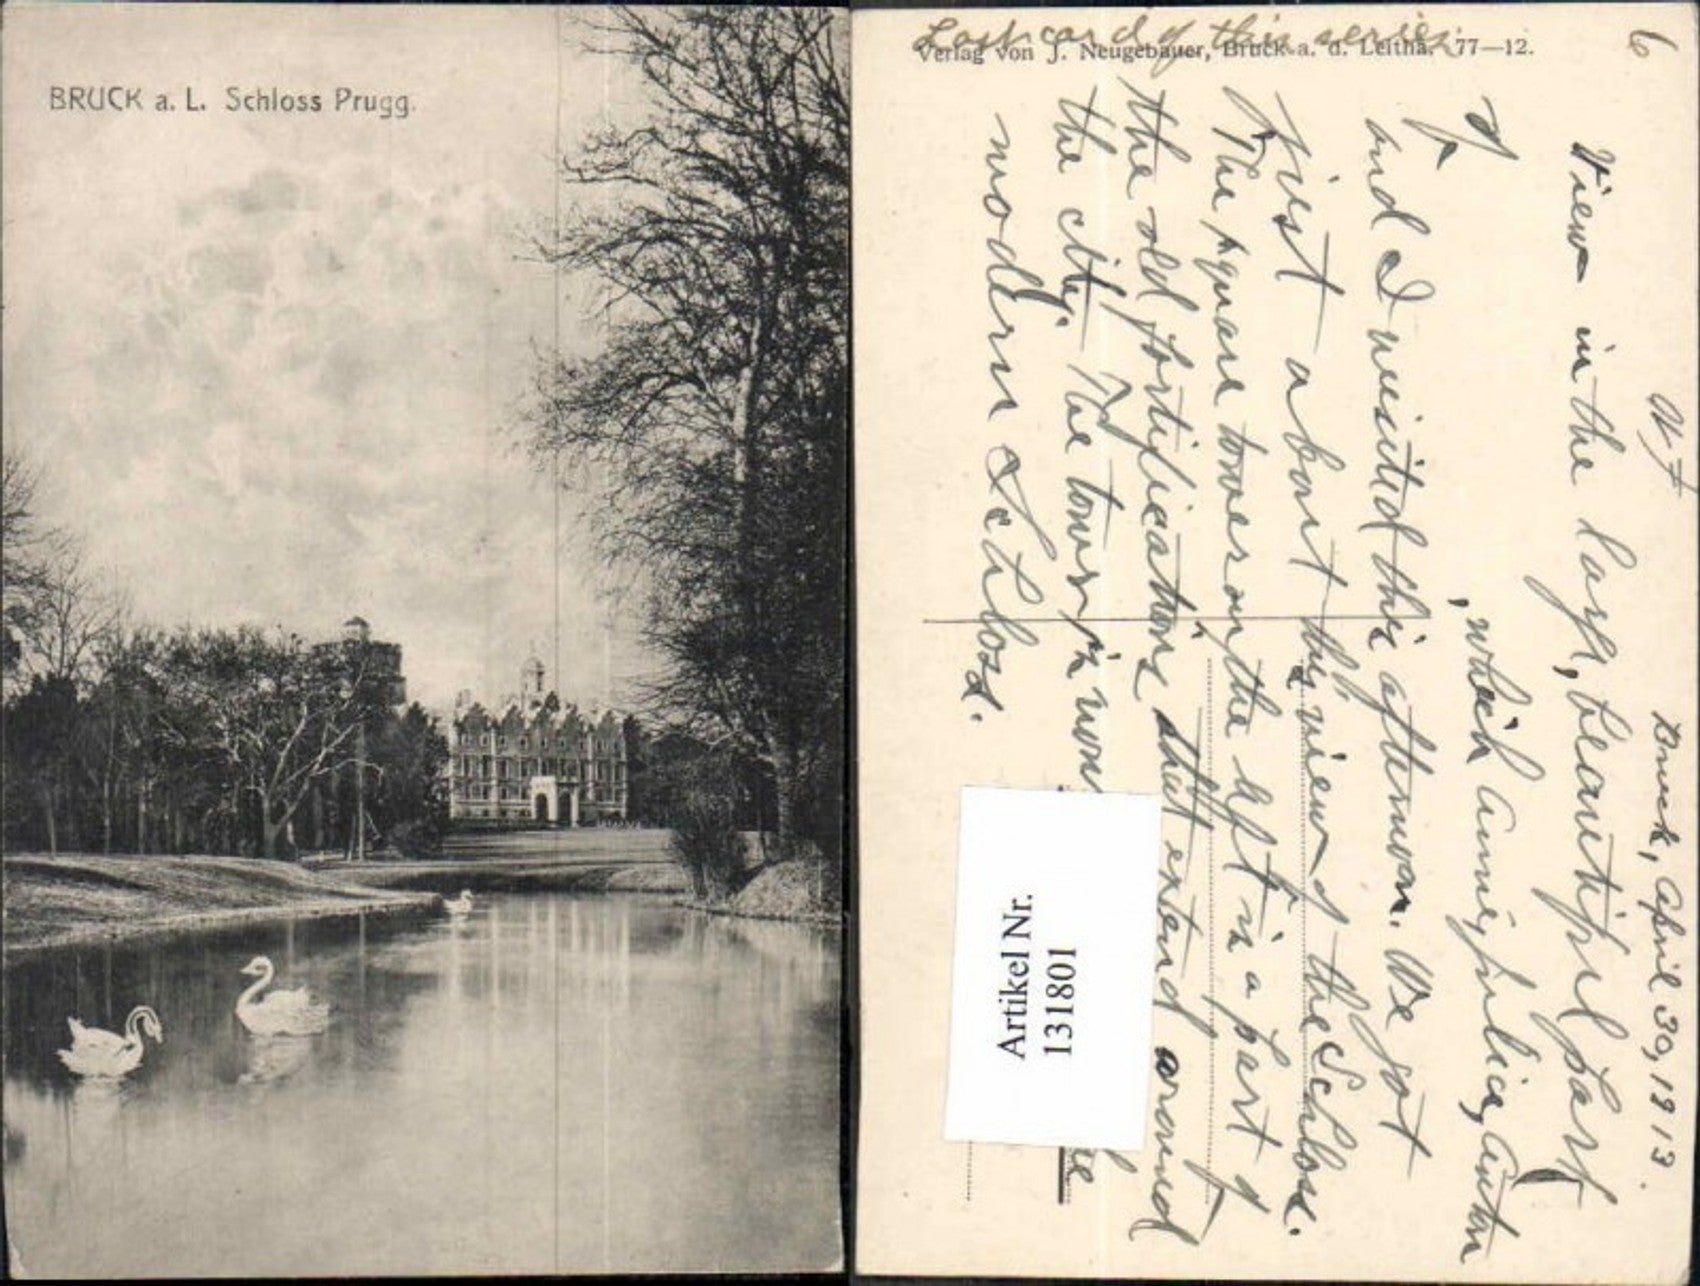 BRUCK a. L. Schloss Prugg.
Last card of this series.
Verlag von J. Neugebauer, Bruck a. d. Leitha. 77—12.
6
Bruck, April 30, 1913.
View in the large, beautiful park
of
, which Annie, Julia, Anton
and I visited this afternoon. We got
just about this view of the Schloss.
The square tower on the left is a part of
the old fortifications that extend around
the city. The tower is
modern Schloss.
Artikel Nr.
131801